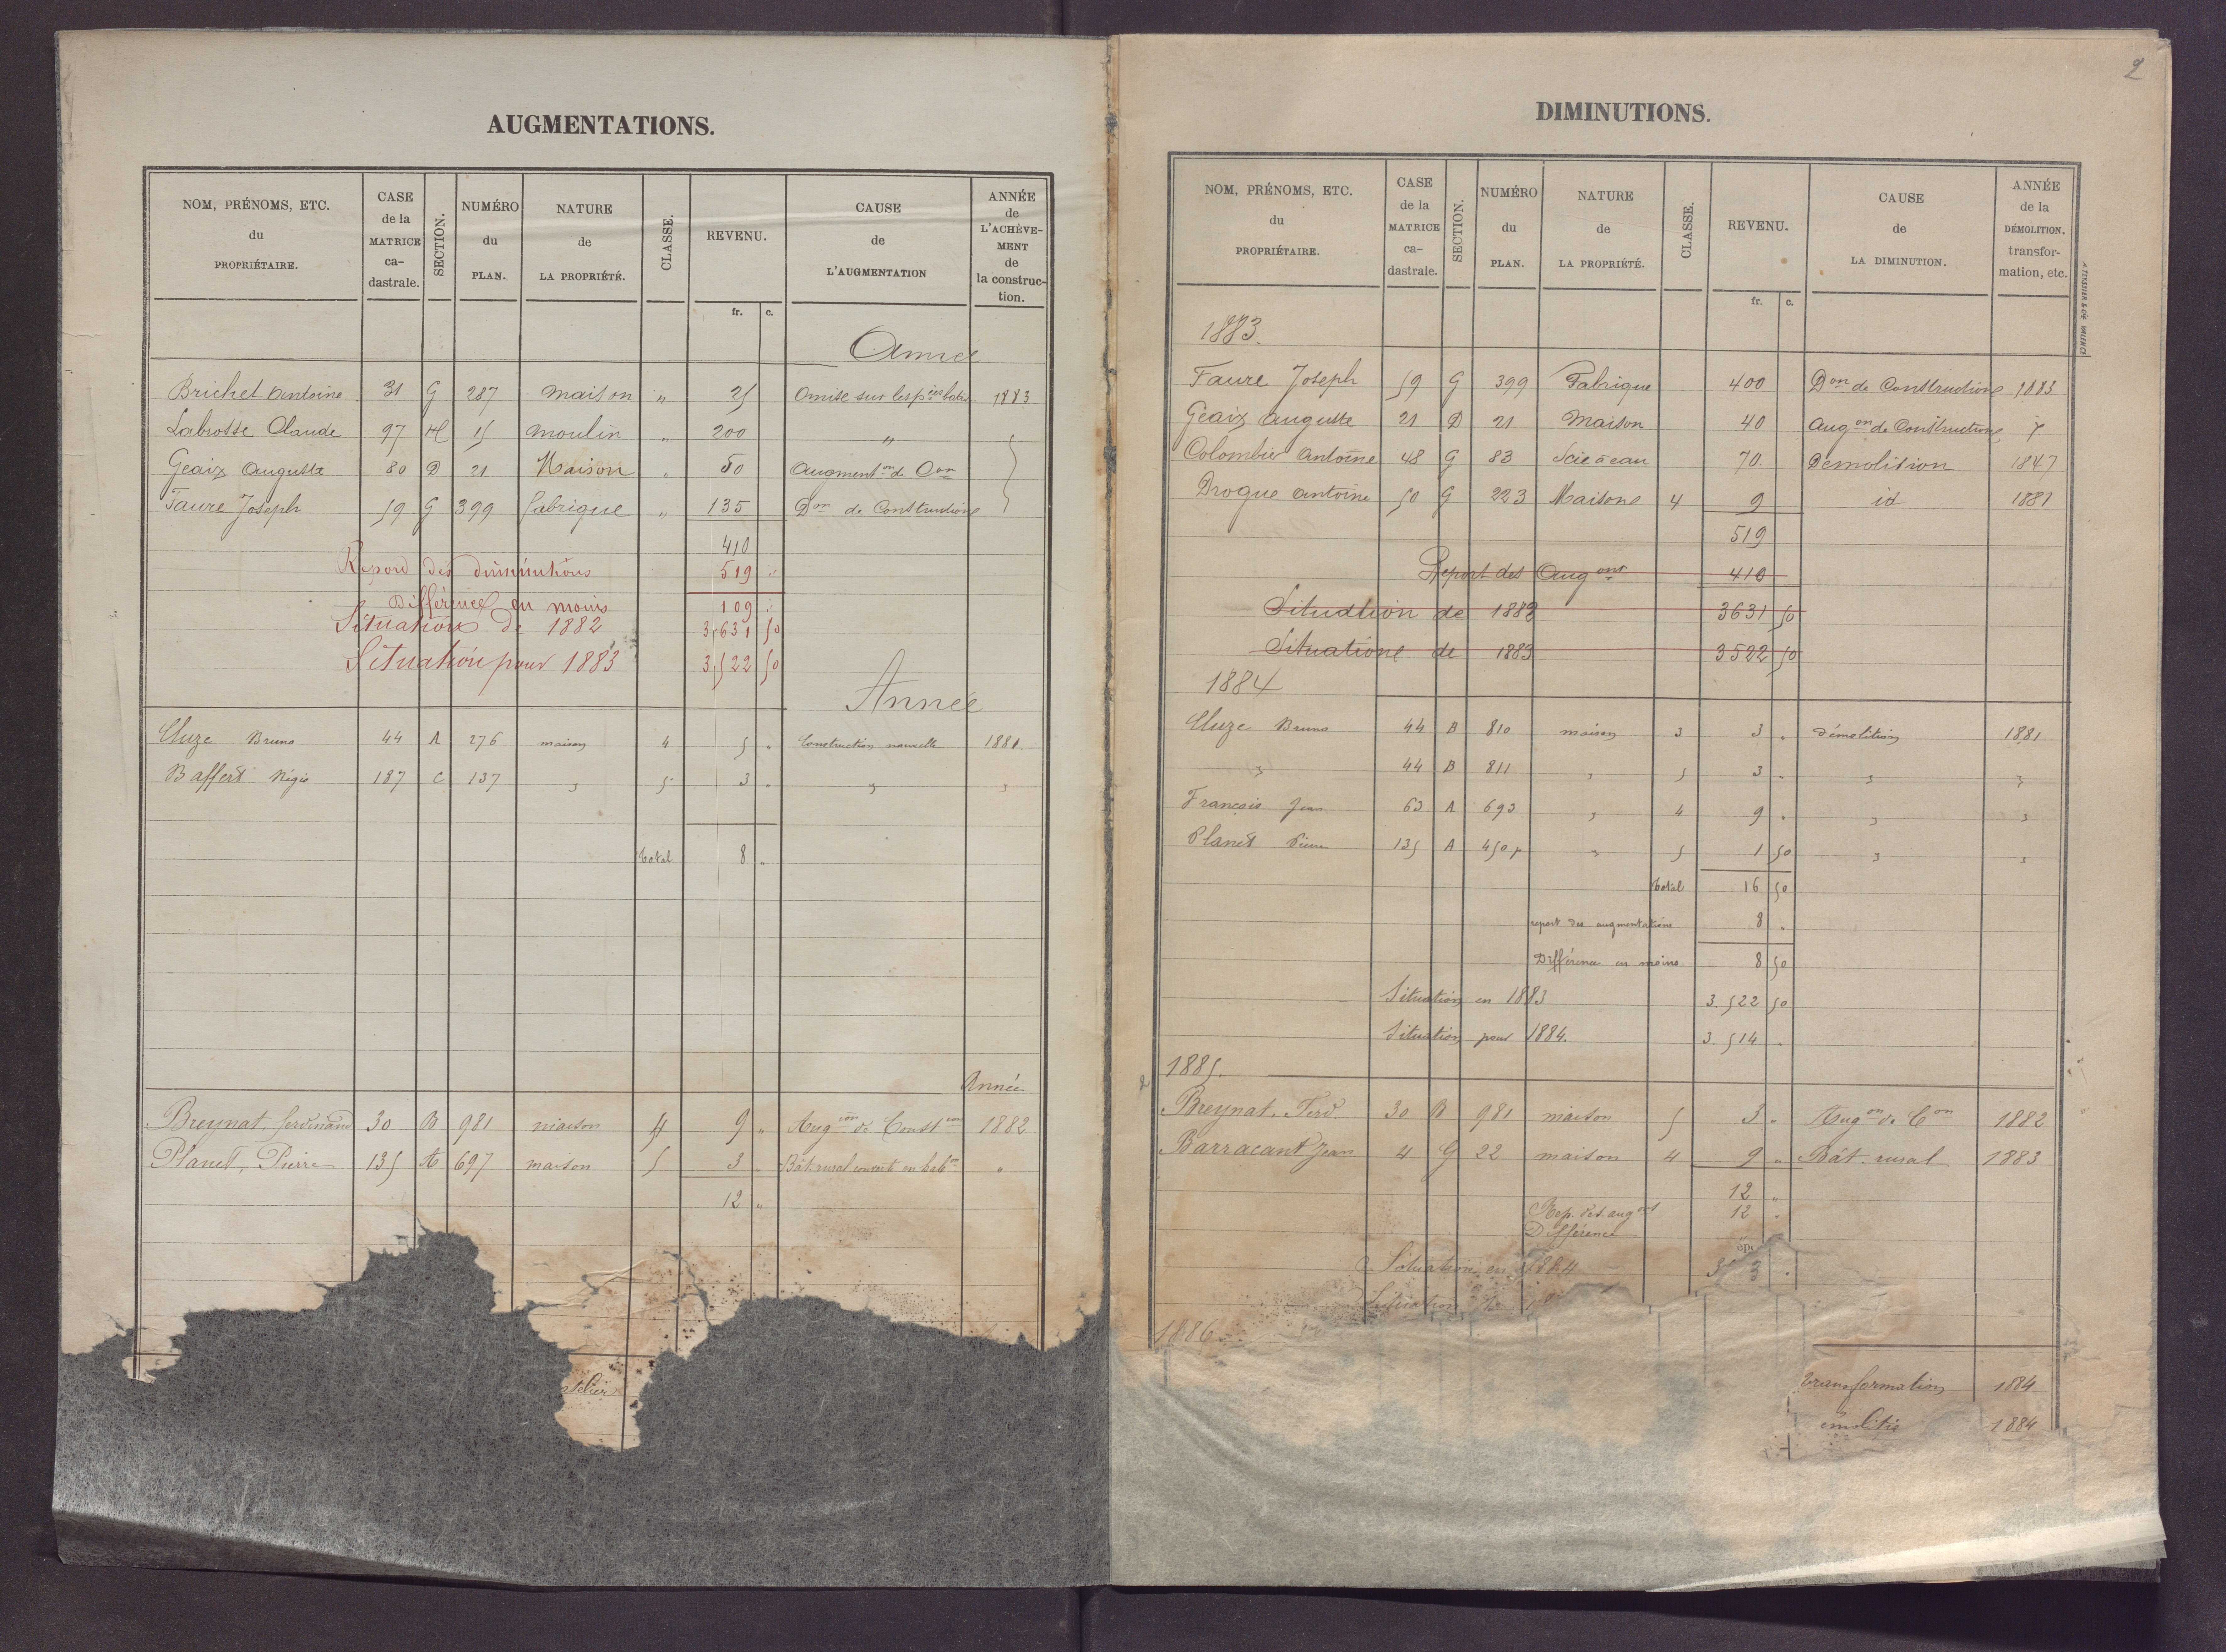 AUGMENTATIONS.
NOM, PRÉNOMS, ETC. du PROPRIÉTAIRE. CASE de la MATRICE ca-dastrale. SECTION. NUMÉRO du PLAN. NATURE de LA PROPRIÉTÉ. CLASSE. REVENU. CAUSE de L'AUGMENTATION ANNÉE de L'ACHÈVE-MENT de la construc-tion.
fr. c.
Année
Brichet Antoine 31 G 287 Maison " 25 Omise sur les bâties 1883
Labrosse Claude 97 H 15 Moulin " 200 "
Geaix Auguste 80 D 21 Maison " 50 Augment.on de Con
Faure Joseph 59 G 399 fabrique " 135 Don de Construction
410
Repord des diminutions 519 "
Différence en moins 109 "
Situation de 1882 3.631 50
Situation pour 1883 3.522 50
Année
Cluze Bruno 44 A 276 maison 4 5 " Construction nouvelle 1881.
Baffert Régis 187 C 137 " 5 3 " " "
total 8 "
Année
Breynat, ferdinand 30 B 981 maison 4 9 " Augon de Constion 1882
Planet, Pierre 135 A 697 maison 5 3 " Bât. rural converti en habon "
12 "
2
DIMINUTIONS.
NOM, PRÉNOMS, ETC. du PROPRIÉTAIRE. CASE de la MATRICE ca-dastrale. SECTION. NUMÉRO du PLAN. NATURE de LA PROPRIÉTÉ. CLASSE. REVENU. CAUSE de LA DIMINUTION. ANNÉE de la DÉMOLITION. transfor-mation, etc.
fr. c.
1883.
Faure Joseph 59 G 399 Fabrique 400 Don de Construction 1883
Geaix Auguste 21 D 21 Maison 40 Augon de Construction
Colombier Antoine 48 G 83 Scie à eau 70. Démolition 1847
Drogue Antoine 50 G 223 Maison 4 9 id 1881
519
Report des Augons 410
Situation de 1882 3631 50
Situation de 1883 3522 50
1884
Cluze Bruno 44 B 810 maison 3 3 " démolition 1881
" 44 B 811 " 5 3 " " "
Français Jean 63 A 693 " 4 9 " " "
Planet Pierre 135 A 450 p " 5 1 50 " "
total 16 50
report des augmentations 8 "
Différence en moins 8 50
Situation en 1883 3.522 50
Situation pour 1884. 3.514 "
1885.
Breynat, Ferd 30 B 981 maison 5 3 " Augon de Con 1882
Barracant Jean 4 G 22 maison 4 9 " Bât. rural 1883
12 "
Rep. des augons 12 "
Différence
Situation en 1884
Situation
1886
transformation 1884
1884